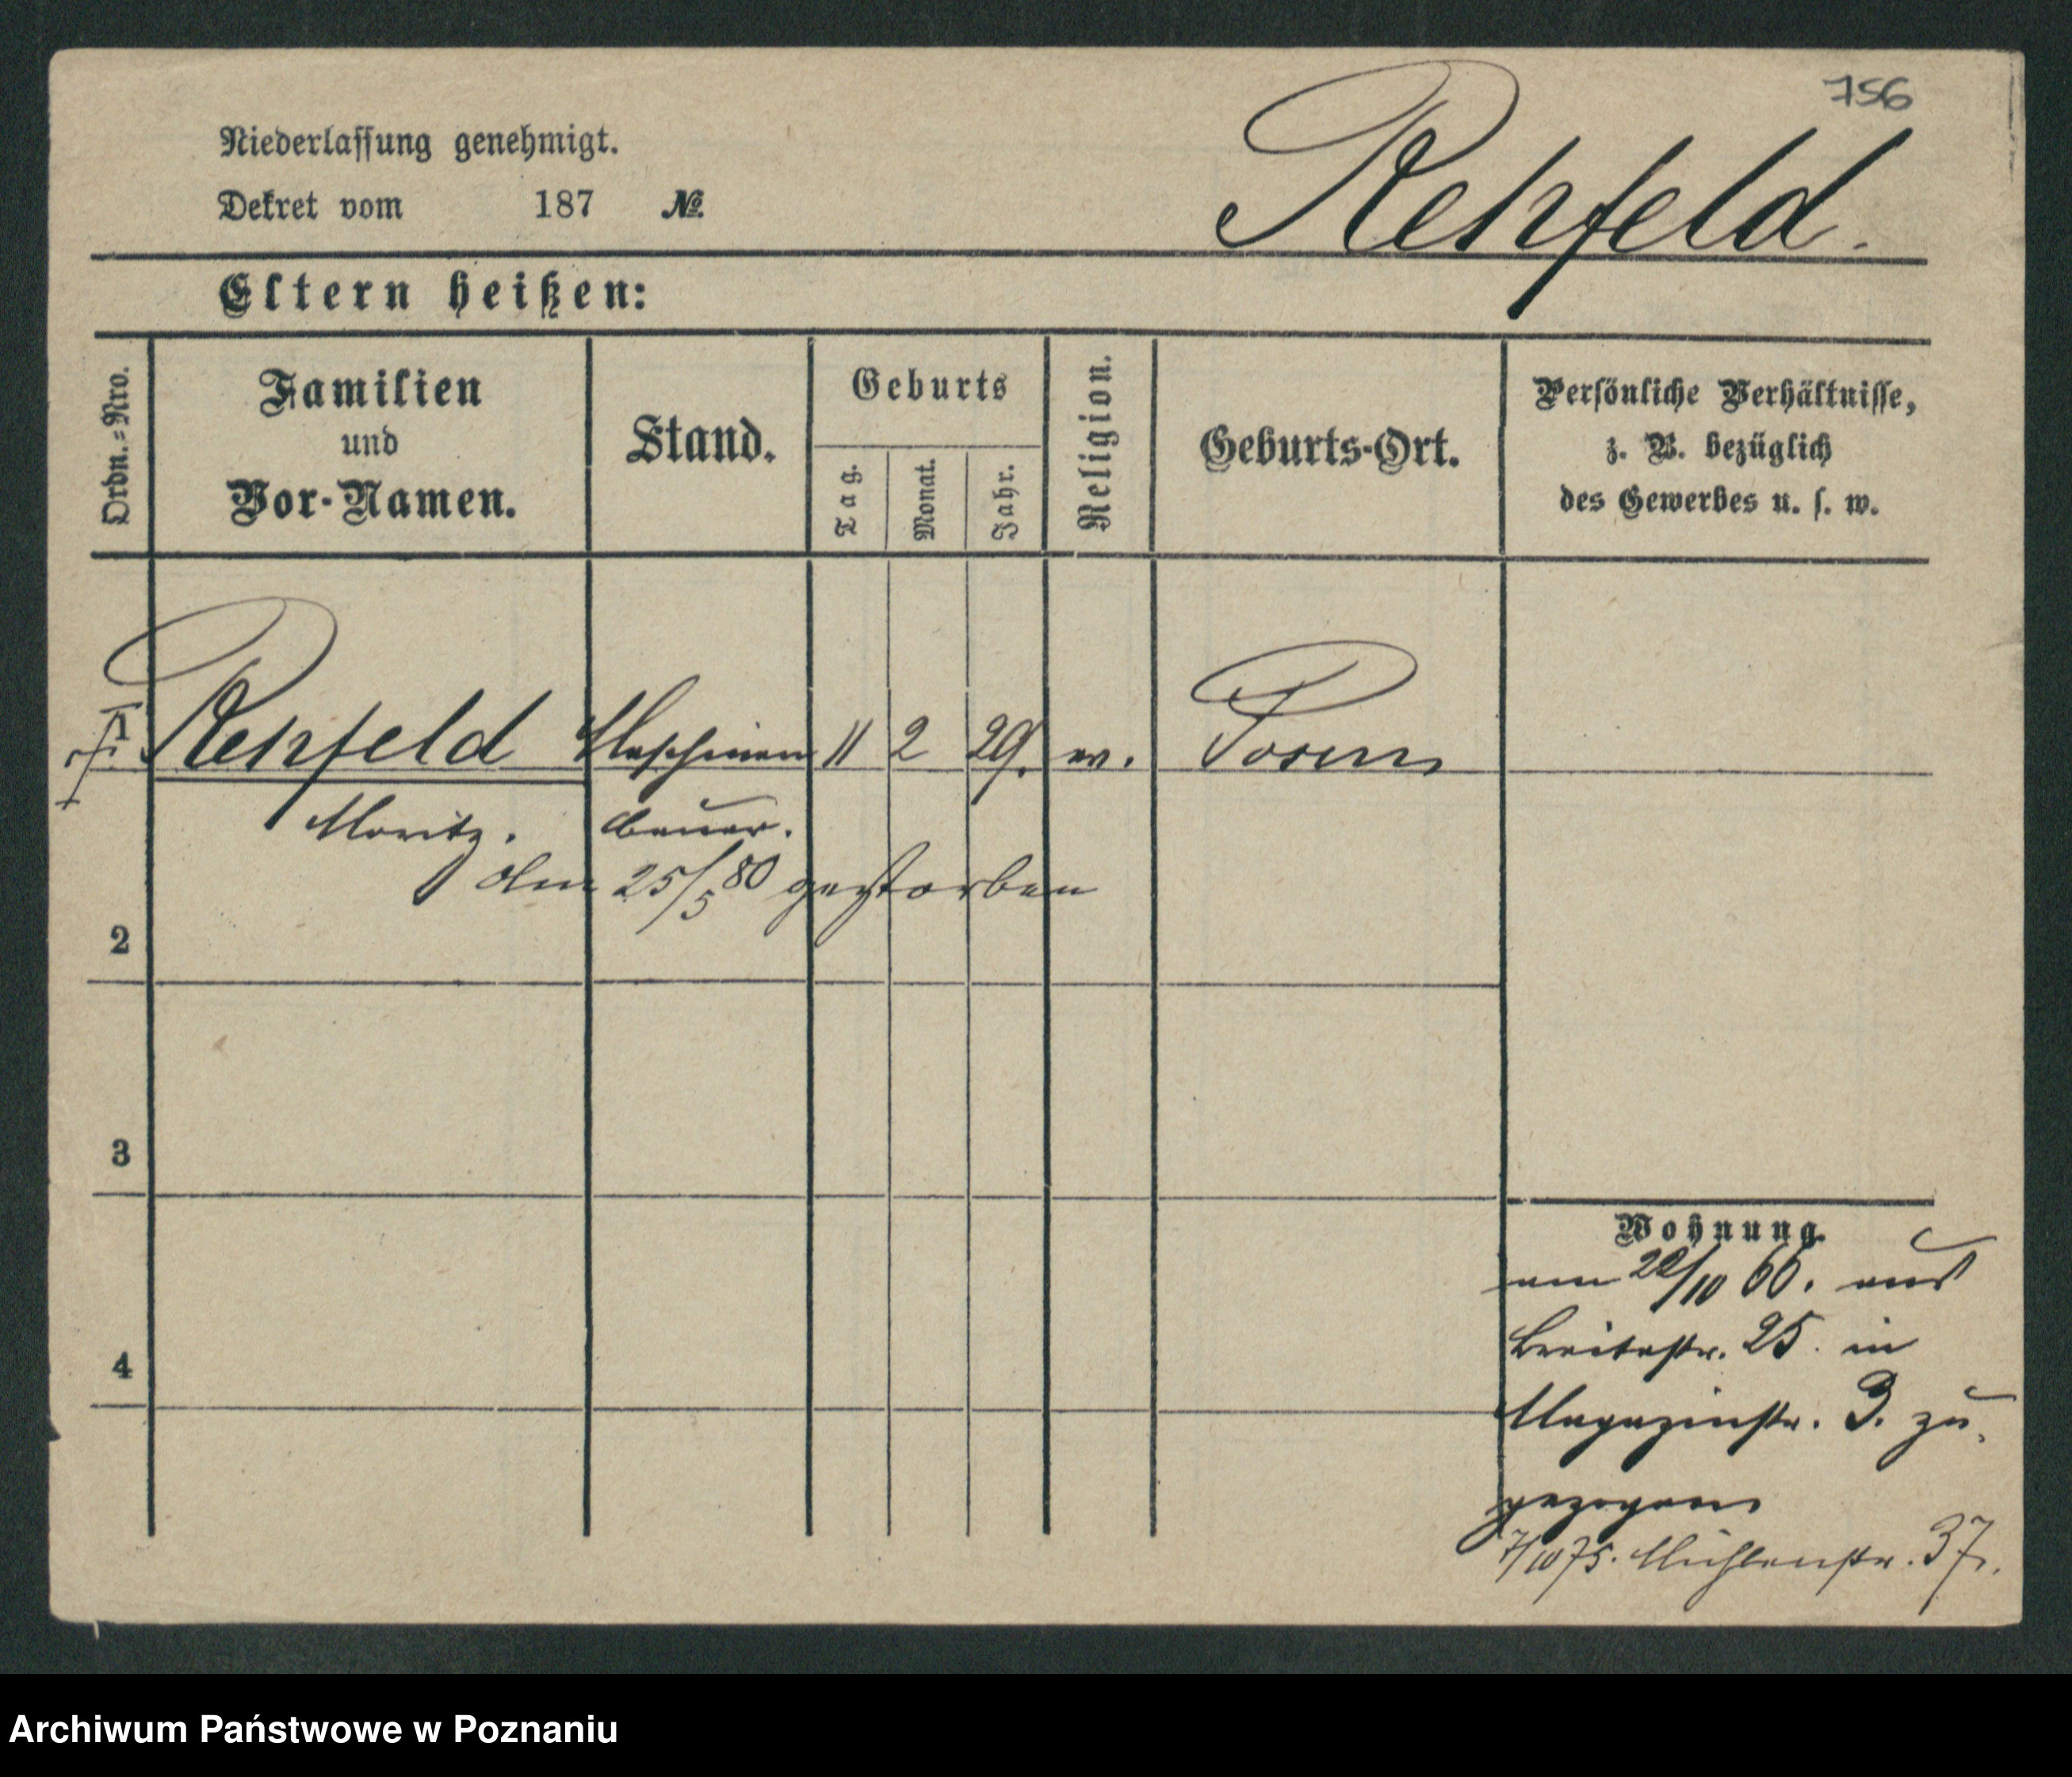 756
Niederlassung genehmigt.
Rehfeld.
Dekret vom 187 No.
Eltern heißen:
Ordn.-Nro.
Familien
und
Vor-Namen.
Stand.
Geburts
Tag.
Monat.
Jahr.
Religion.
Geburts-Ort.
Persönliche Verhältnisse,
z. B. bezüglich
des Gewerbes u. s. w.
1 Rehfeld Maschinen 11 2 29. Posen
Moritz. bauer.
Am 25/5 80 gestorben
2
3
4
Wohnung.
am 22/10 66. aus
Breitestr. 25. in
Magazinstr. 3. zu-
gezogen
7/10 75. Mühlenstr. 37.
Archiwum Państwowe w Poznaniu